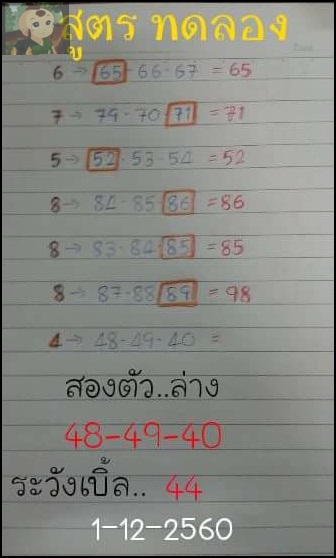 สูตร ทดลอง
6 → 65-66-67 = 65
7 → 79-70-71 = 71
5 → 52-53-54 = 52
8 → 84-85-86 = 86
8 → 83-84-85 = 85
8 → 87-88-89 = 98
4 → 48-49-40 =
สองตัว..ล่าง
48-49-40
ระวังเบิ้ล.. 44
1-12-2560